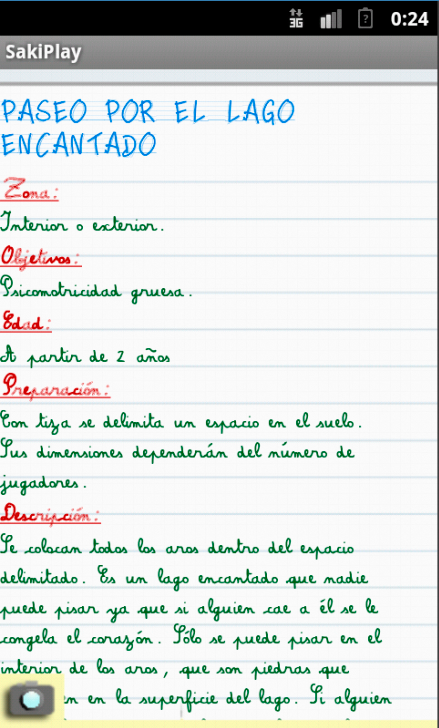 3G ? 0:24
SakiPlay
PASEO POR EL LAGO
ENCANTADO
Zona:
Interior o exterior.
Objetivos:
Psicomotricidad gruesa.
Edad:
A partir de 2 años
Preparación:
Con tiza se delimita un espacio en el suelo.
Sus dimensiones dependerán del número de
jugadores.
Descripción:
Se colocan todos los aros dentro del espacio
delimitado. Es un lago encantado que nadie
puede pisar ya que si alguien cae a él se le
congela el corazón. Sólo se puede pisar en el
interior de los aros, que son piedras que
en en la superficie del lago. Si alguien